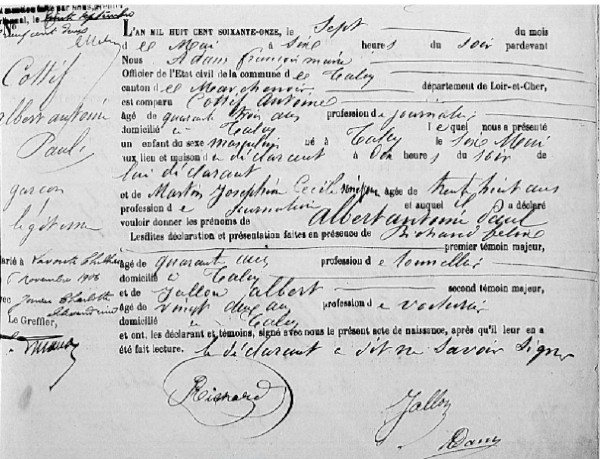 Cottif
Albert antoine
Paul
garçon
légitime
novembre 1906
Le Greffier,
L'AN MIL HUIT CENT SOIXANTE-ONZE, le Sept du mois
de Mai à Six heures du soir pardevant
Nous Adam françois marie
Officier de l'Etat civil de la commune de Talcy
canton de Marchenoir département de Loir-et-Cher,
est comparu Cottif Antoine
âgé de quarante trois ans profession de journalier
domicilié à Talcy lequel nous a présenté
un enfant du sexe masculin né à Talcy le Six Mai
aux lieu et maison du déclarant à heures du soir de
lui déclarant
et de Martin Joséphine Cécile âgée de trente huit ans
profession de journalière et auquel il a déclaré
vouloir donner les prénoms de Albert antoine Paul
Lesdites déclaration et présentation faites en présence de Richard
premier témoin majeur,
âgé de quarante ans profession de tonnelier
domicilié à Talcy
et de Jallon albert second témoin majeur,
âgé de vingt deux ans profession de voiturier
domicilié à Talcy
et ont, les déclarant et témoins, signé avec nous le présent acte de naissance, après qu'il leur en a
été fait lecture. le déclarant a dit ne Savoir Signer
Richard
Jallon
Adam